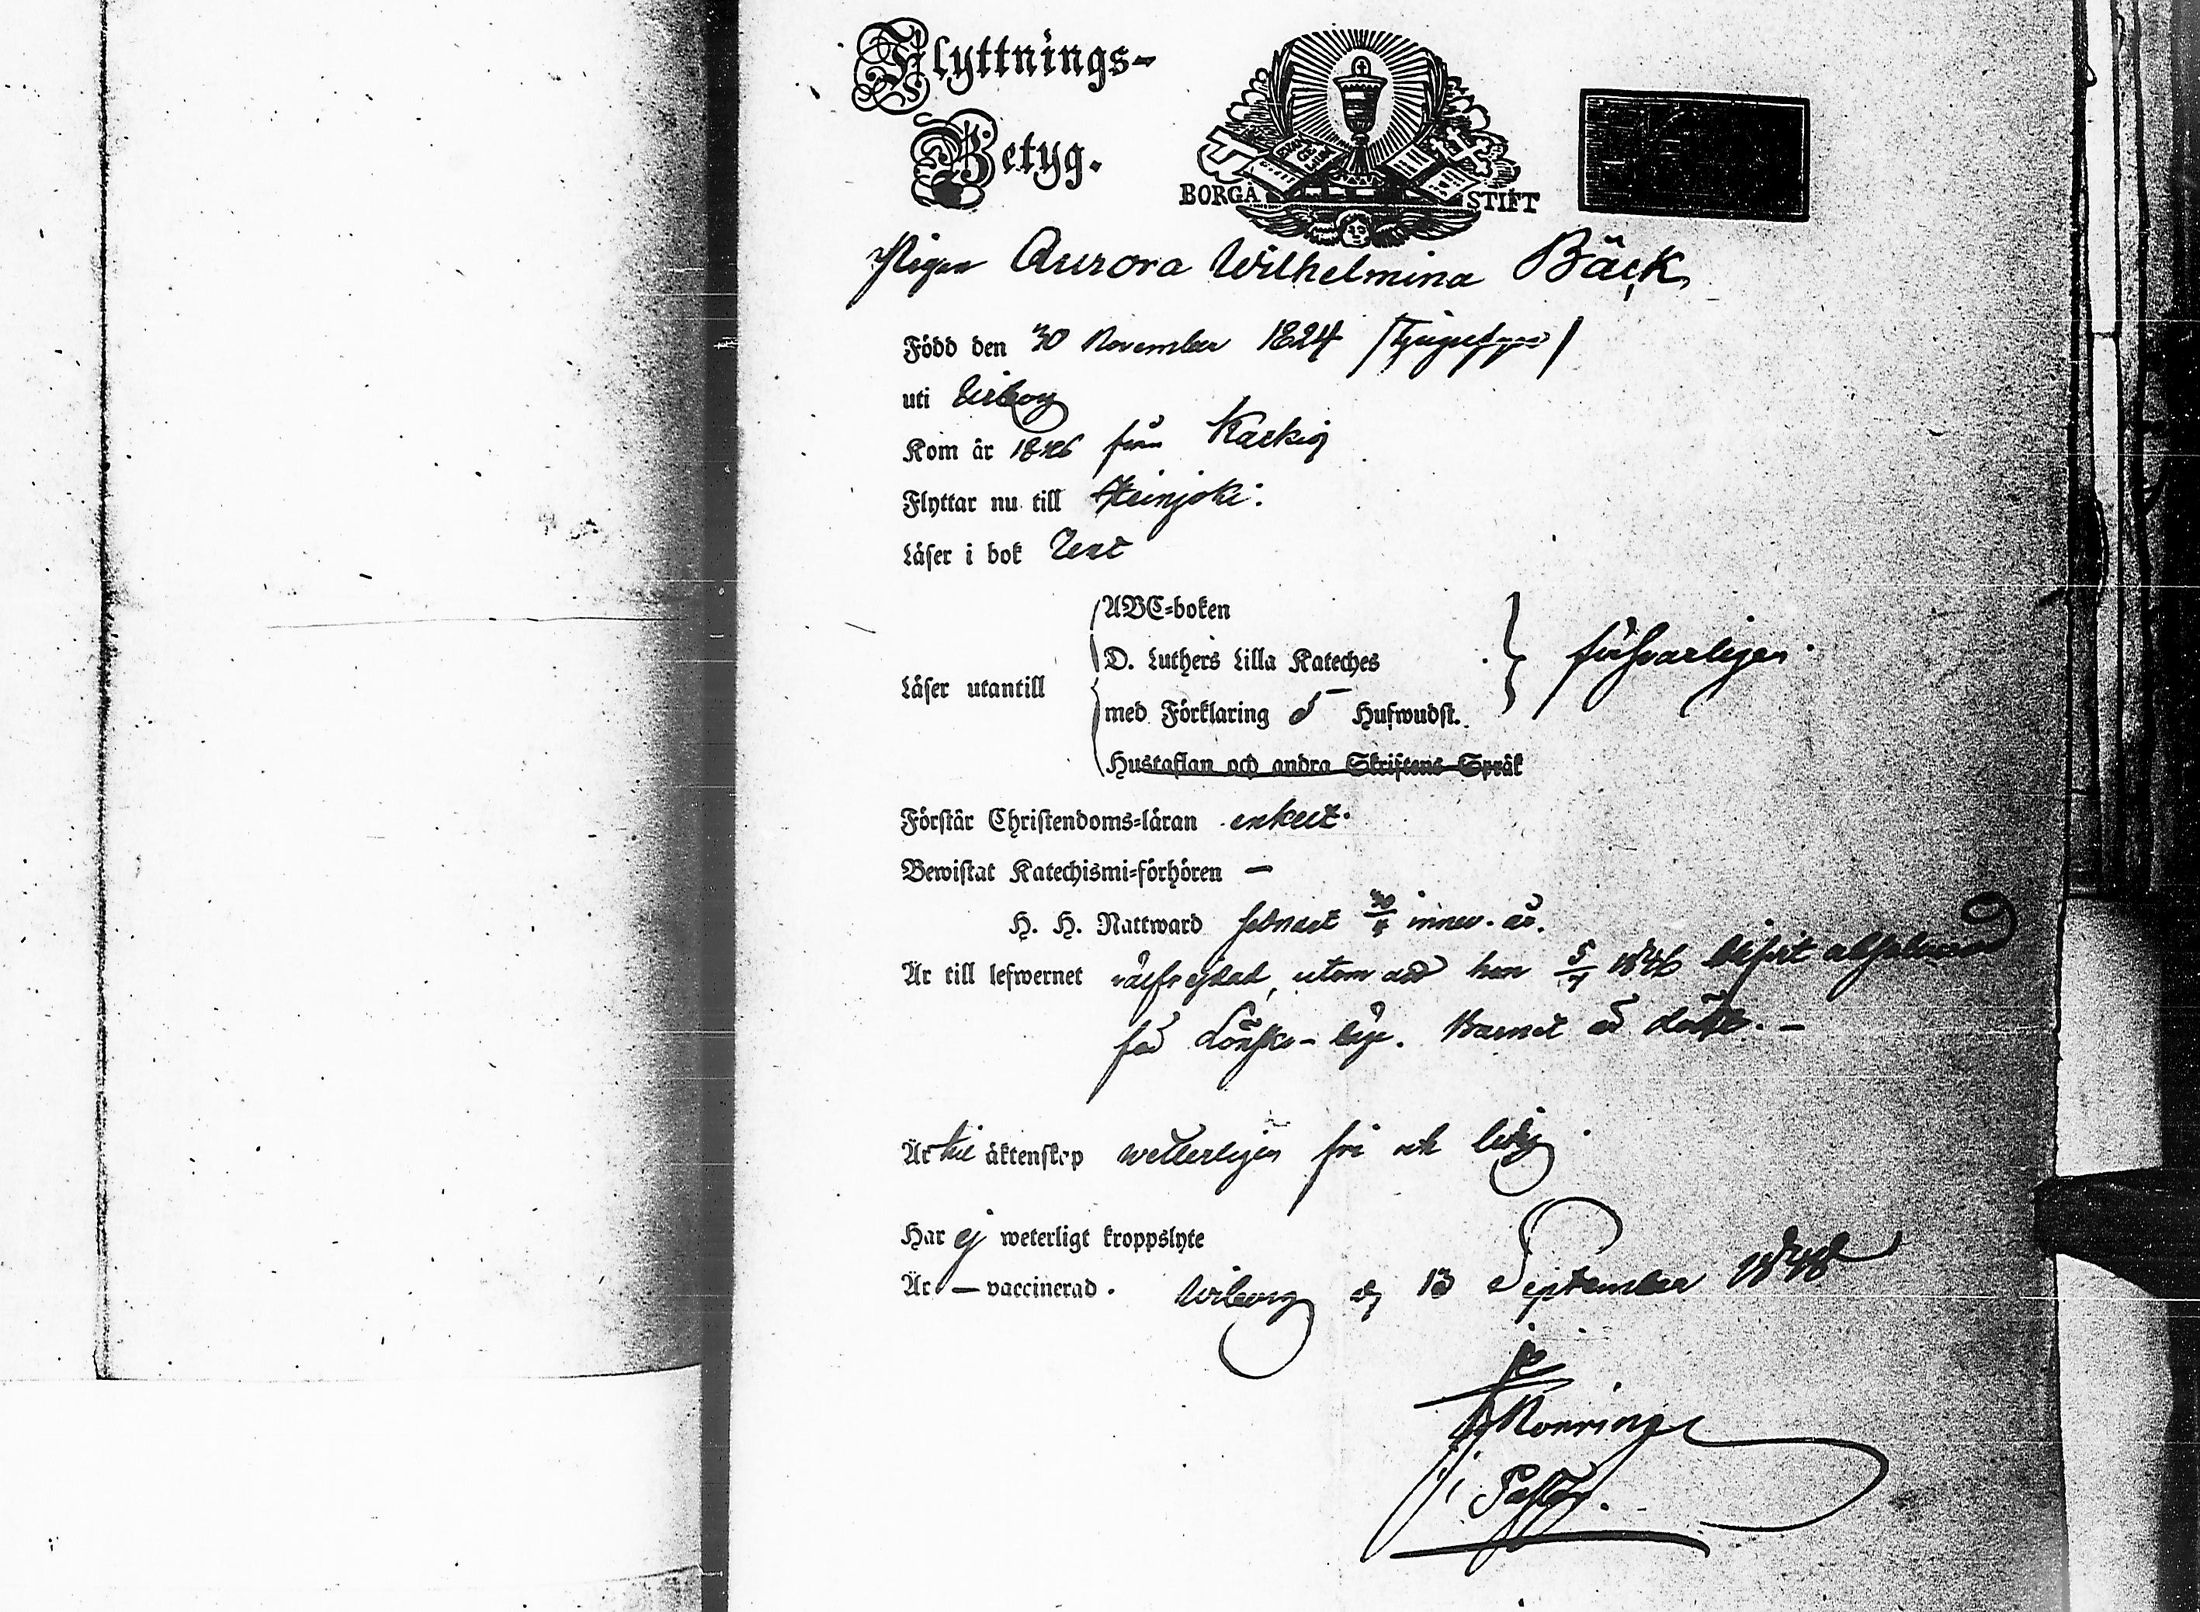 Flyttnings-
Betyg.
BORGÅ STIFT
Pigan Aurora Wilhelmina Bäck
Född den 30 November 1824 /Tjugufyra/
uti Wiborg
Kom år 1846 från
Flyttar nu till Heinjoki.
Läser i bok Rent
Läser utantill
ABC-boken
D. Luthers Lilla Kateches
med Förklaring 5 Hufwudst.
försvarligen.
Hustaflan och andra Skriftens Språk
Förstår Christendoms-läran enkelt.
Bewistat Katechismi-förhören —
H. H. Nattward sednast innev. år.
Är till lefwernet välfrejdad, utom att hon 5/7 1846 blifvit absolverad
för Lönska-läge. Barnet är dödt. —
Är till äktenskap wetterligen fri och ledig.
Har ej weterligt kroppslyte
Är — vaccinerad. Wiborg d. 13 September 1848
Pastor.